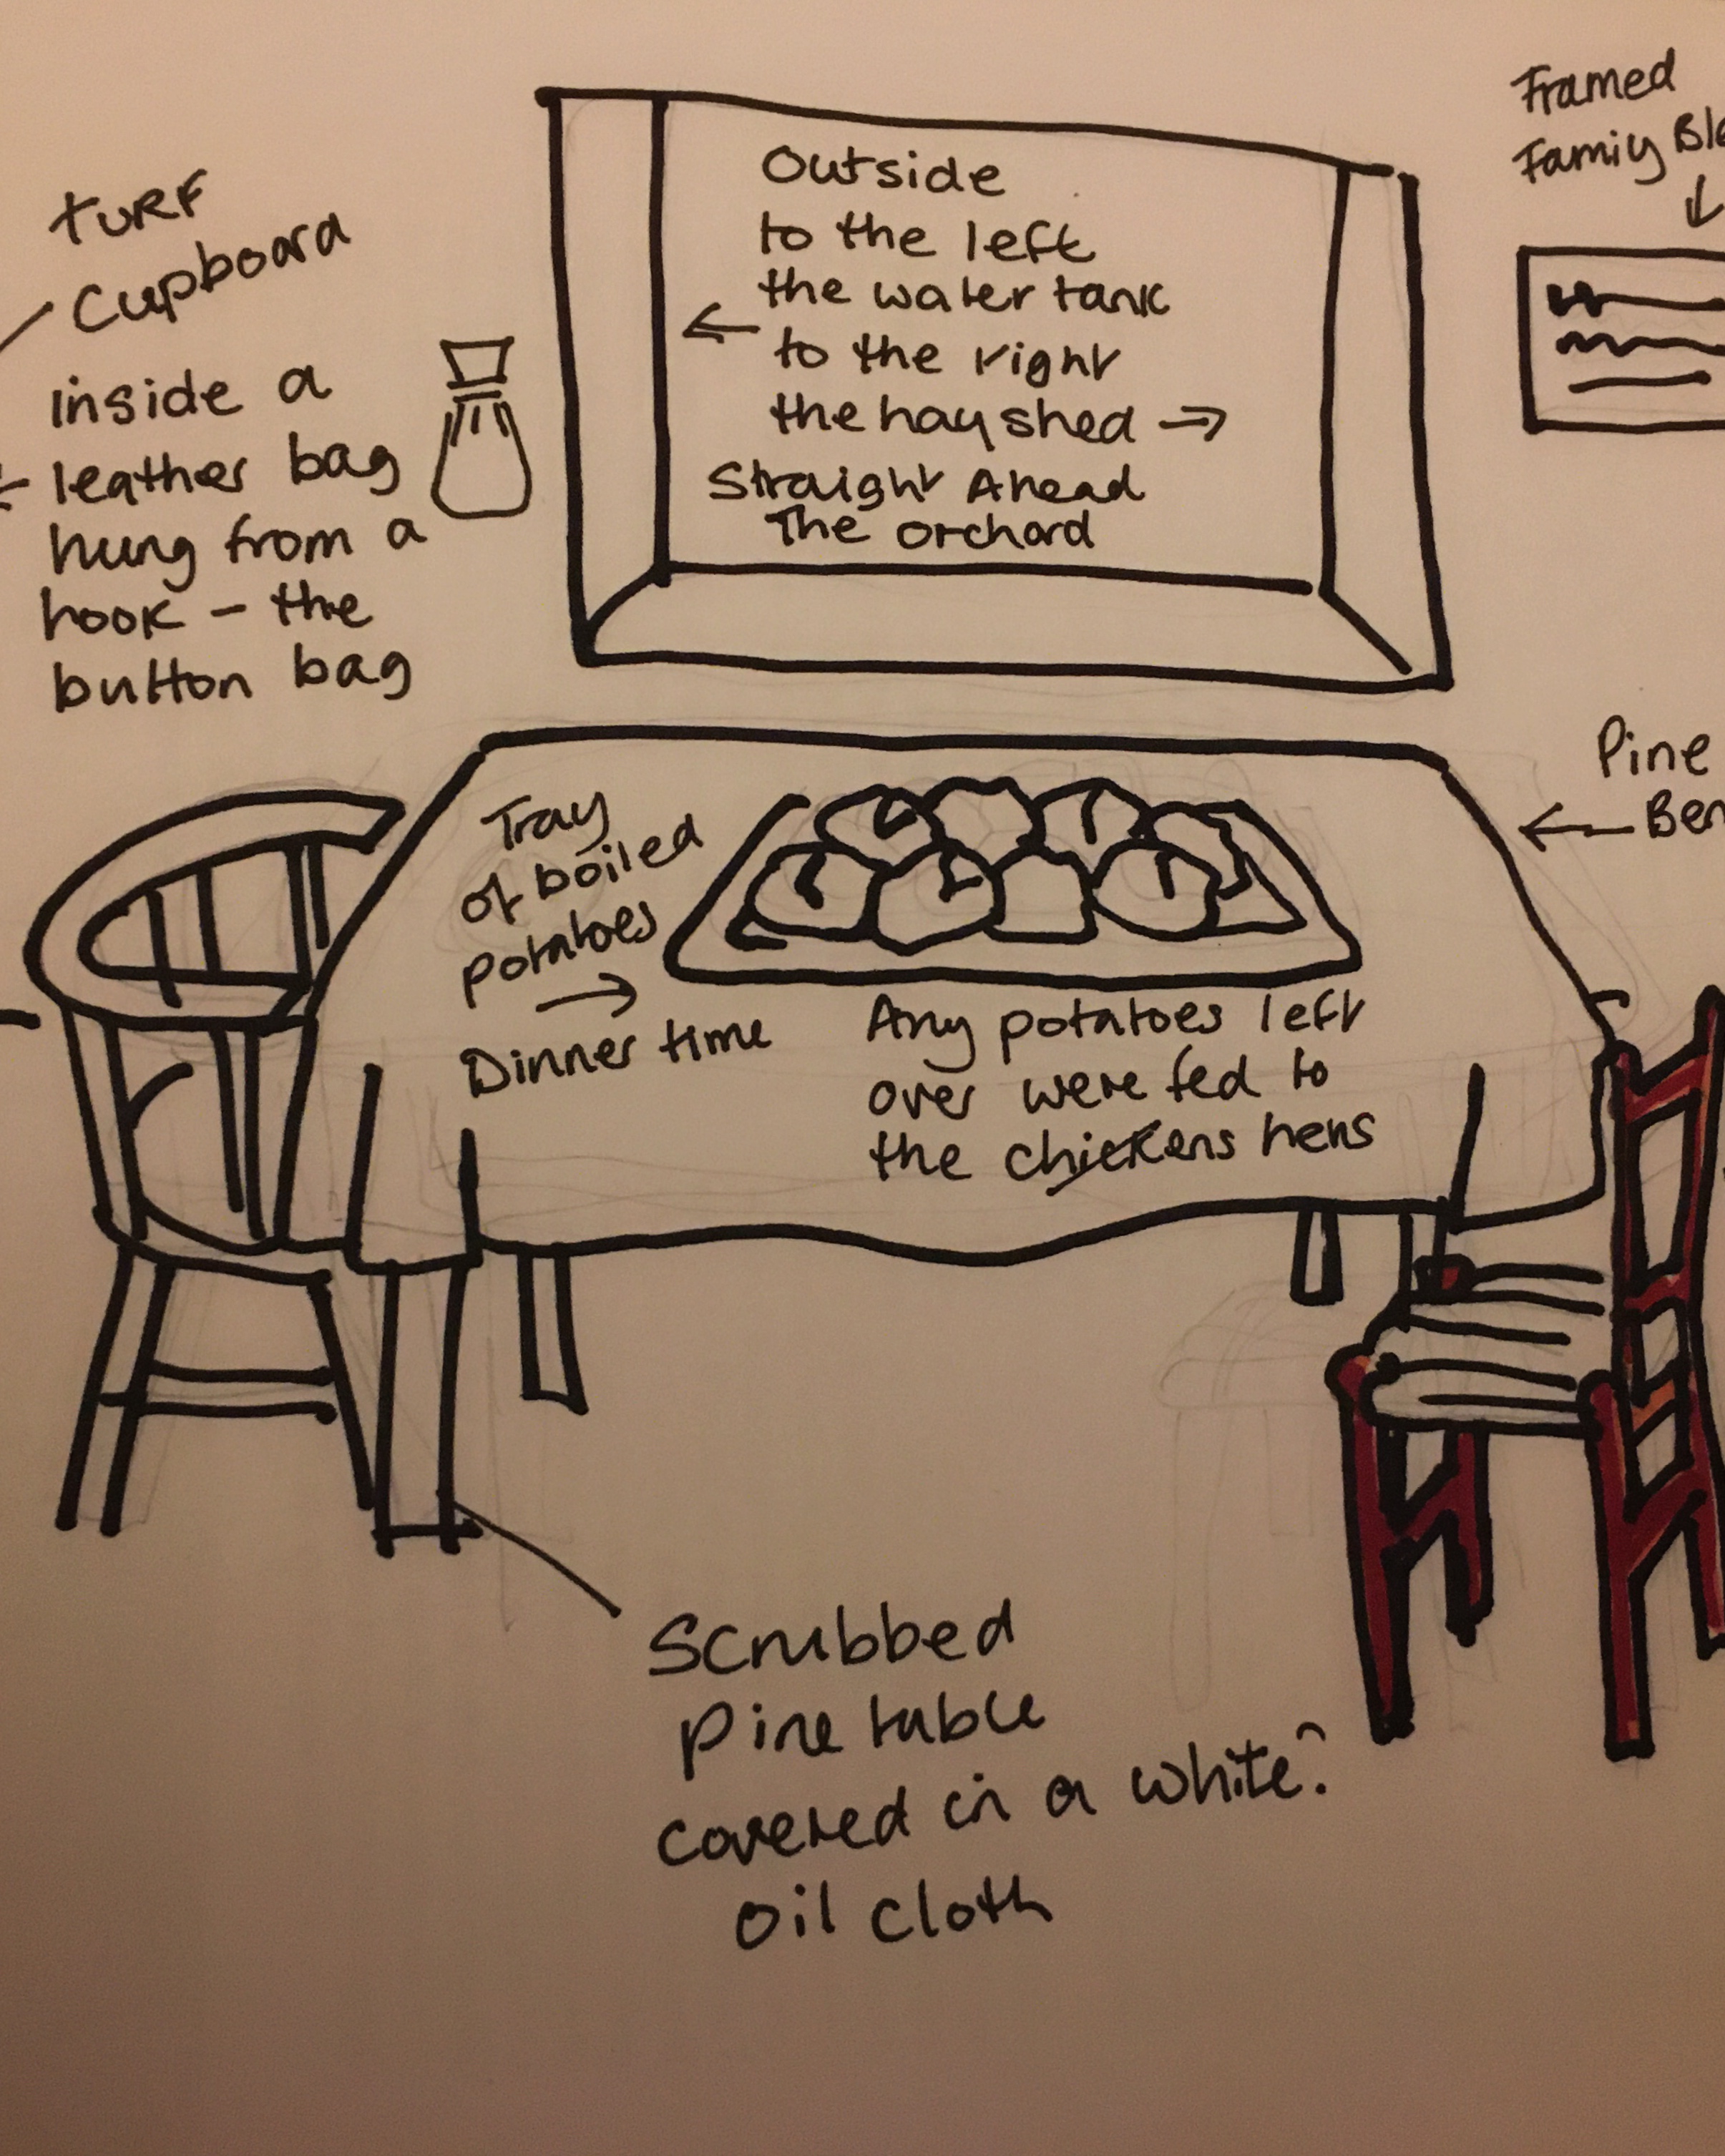 TURF
Cupboard
inside a
leather bag
hung from a
hook - the
button bag
Outside
to the left
the water tank
to the right
the hayshed →
Straight Ahead
The orchard
Framed
Famiy
Pine
Tray
of boiled
potatoes
Dinner time
Any potatoes left
over were fed to
the chickens hens
Scrubbed
Pine table
covered in a white?
oil cloth